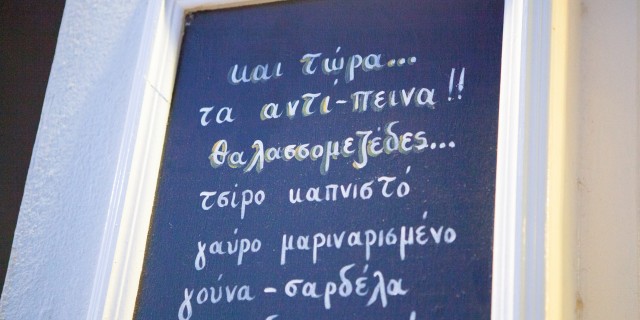 και τώρα...
τα αντι-πεινα!!
θαλασσομεζέδες...
τσίρο καπνιστό
γαύρο μαριναρισμένο
γούνα - σαρδέλα